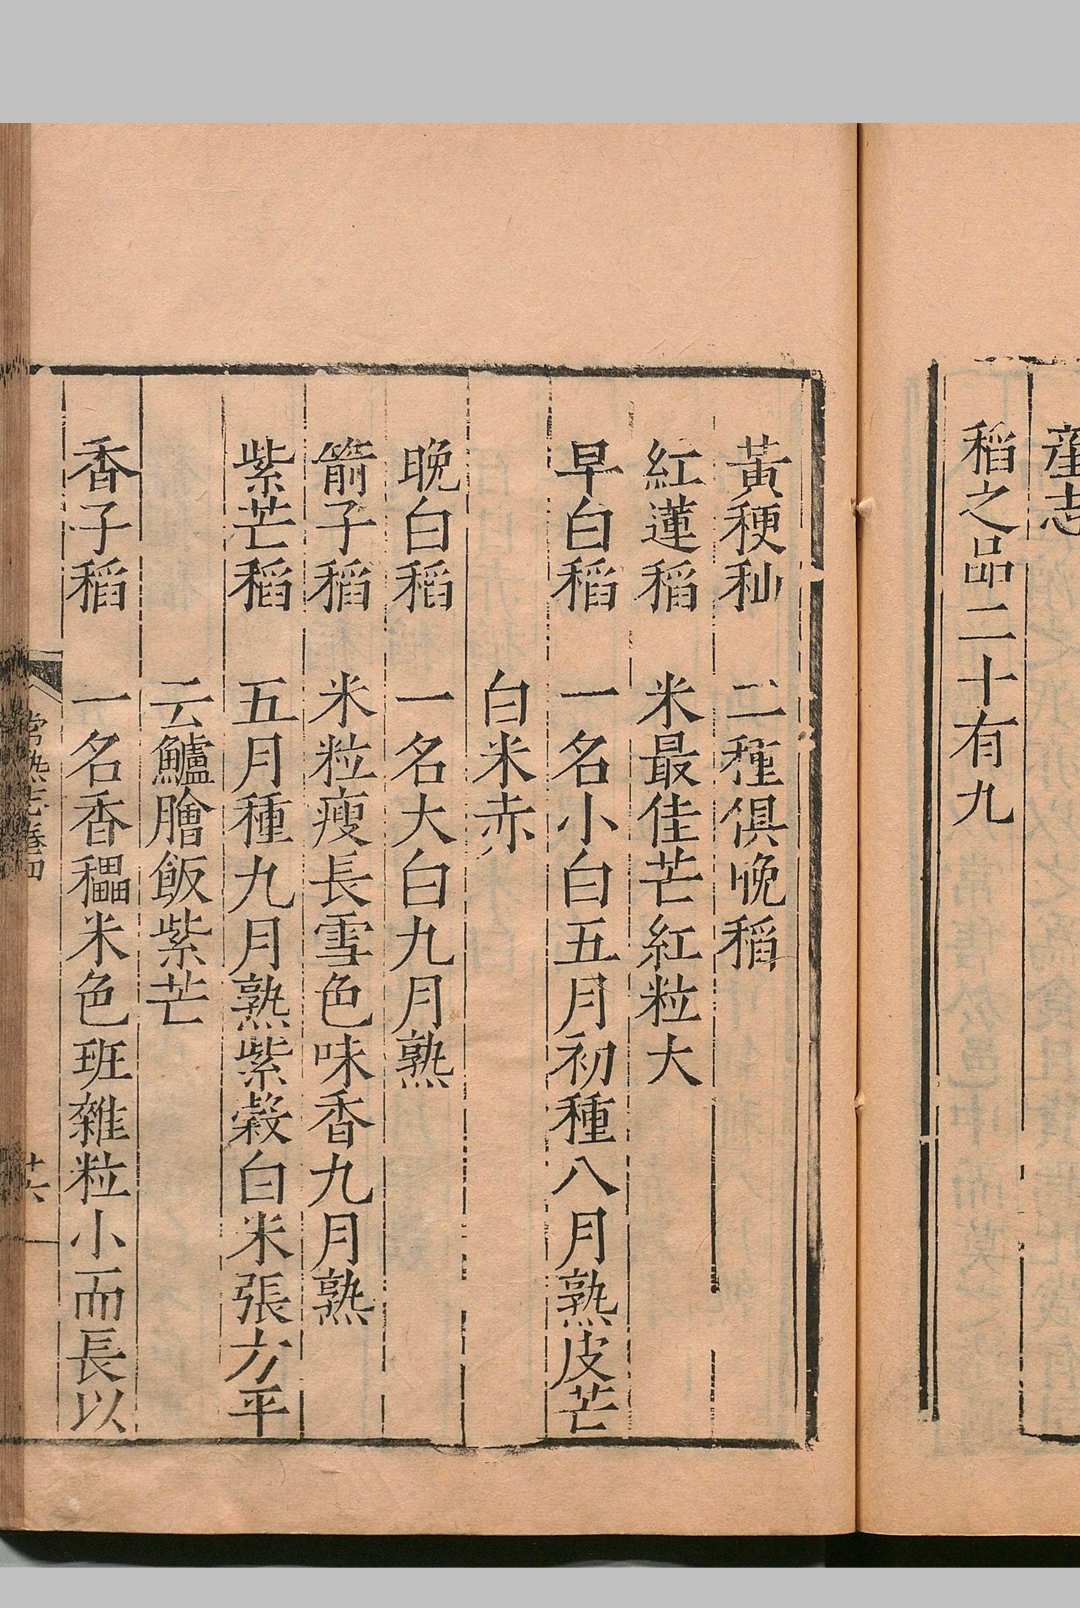 產志
稻之品二十有九
黃稉秈　二種俱晚稻
紅蓮稻　米最佳芒紅粒大
早白稻　一名小白五月初種八月熟皮芒
白米赤
晚白稻　一名大白九月熟
箭子稻　米粒瘦長雪色味香九月熟
紫芒稻　五月種九月熟紫穀白米張方平
云鱸膾飯紫芒
香子稻　一名香䆉米色班雜粒小而長以
常熟志卷四
廿六